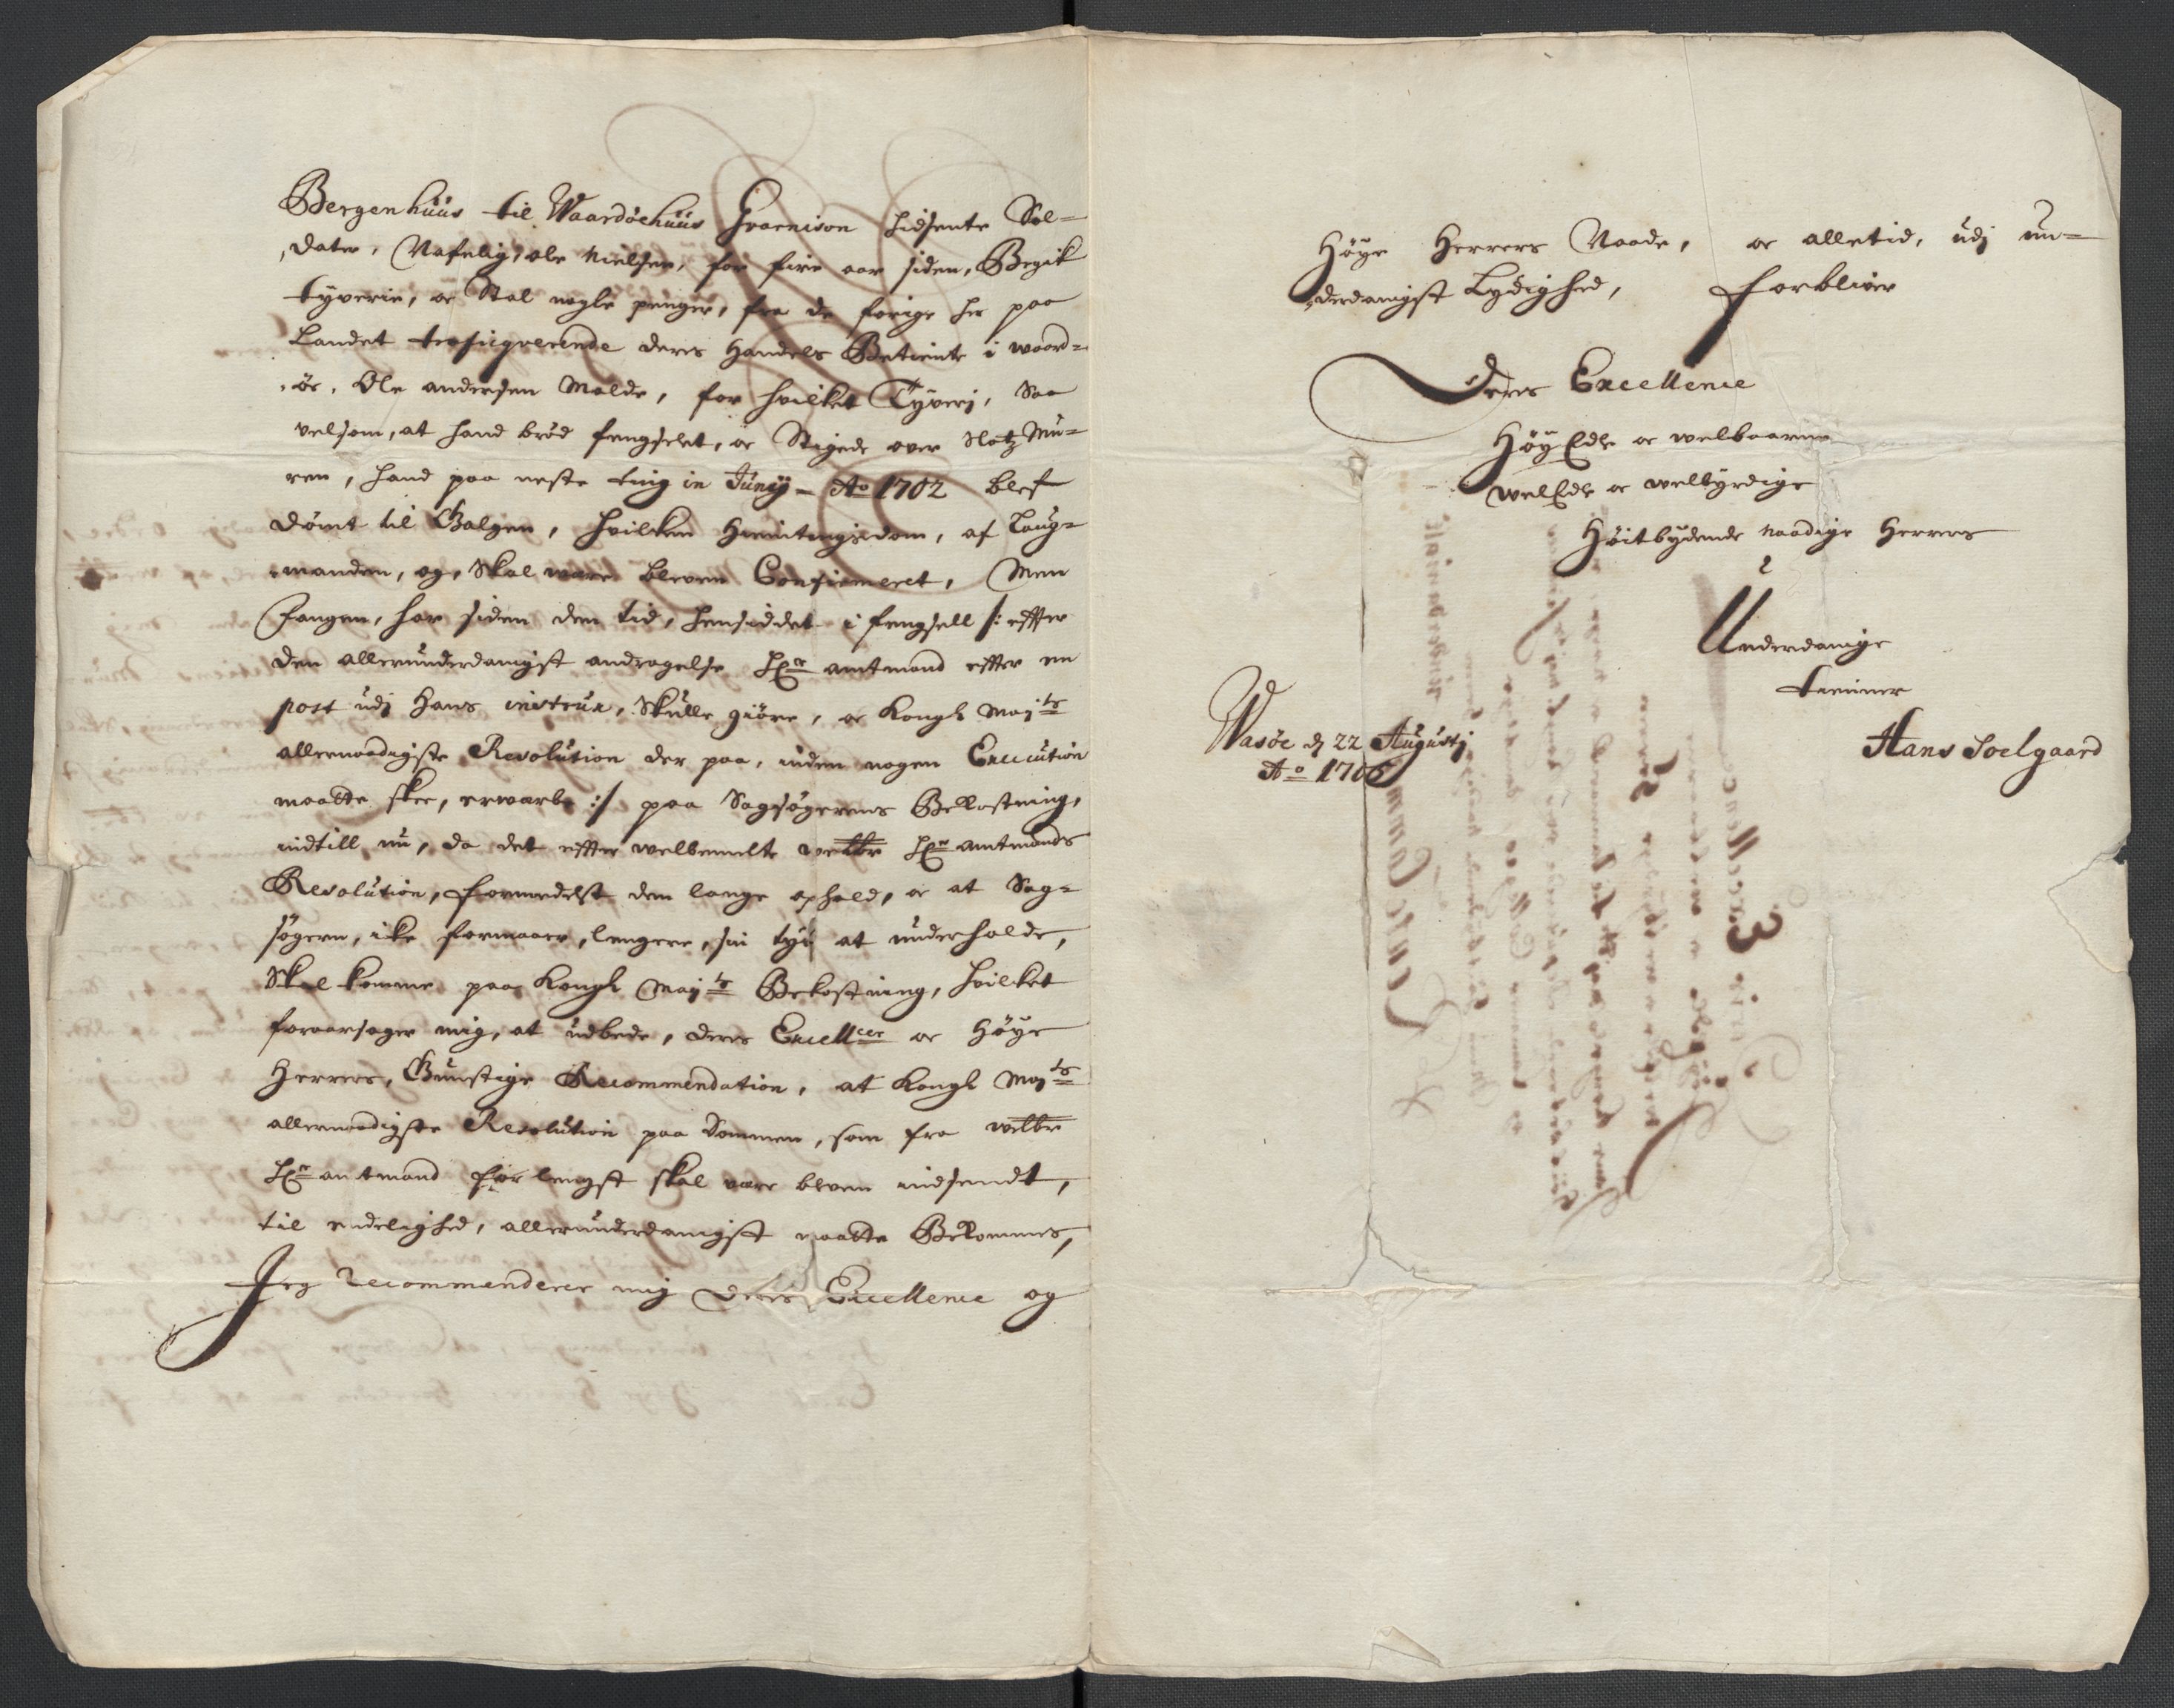 Bergenhuus til Waardöehuus Guarnison hidsente Sol=
dater, Nafnlig, ole Nielsen, for fire aar siden, Begik
tyverie, oc Stal nogle penger, fra de forige her paa
Landet trafiqverende deres Handels Betiente i waard=
öe, Ole andersen Molde, for hvilket Tyverj, Saa
velsom, at hand bröd fengselet, oc Stigede over Slotz Mu=
ren, hand paa neste ting in Junij Ao 1702 blef
dömt til Galgen, hvilken Hiemtingsdom, af Laug=
manden, og, Skal were bleven Confirmeret, Men
Fangen, har siden den tid, hensiddet i fengsell /: effter
den allerunderdanigst andragelse Hr amtmand effter en
post udj Hans instrux, Skulle giöre, oc Kongl Mayts
allernaadigste Resolution der paa, inden nogen Execution
maatte skee, erwarte :/ paa Sagsögerens Bekostning,
indtill nu, da det effter welbemelte welbr Hr amtmands
Resolution, formedelst den lange ophold, oc at Sag=
sögeren, ike formaaer, lengere, sin tyv at underholde,
Skal komme paa Kongl Mayts Bekostning, hvilket
foraarsager mig, at udbede, deres Excellcer oc Höye
Herrers, Gunstige Recommendation, at Kongl Mayts
allernaadigste Resolution paa Dommen, som fra welbr
Hr amtmand for lengst skal være bleven indsendt,
til endelighed, allerunderdanigst maatte Bekommes,
Jeg recommenderer mig Deris Excellence og
Höye Herrers Naade, oc alletid, udj un=
derdanigst Lydighed, forbliver
Deres Excellence
HöyEdle oc welbaarne
welEdle oc welbyrdige
Höitbydende naadige Herrers
Underdanige
tienner
Hans Soelgaard
Wasöe d 22 Augustj
Ao 1706